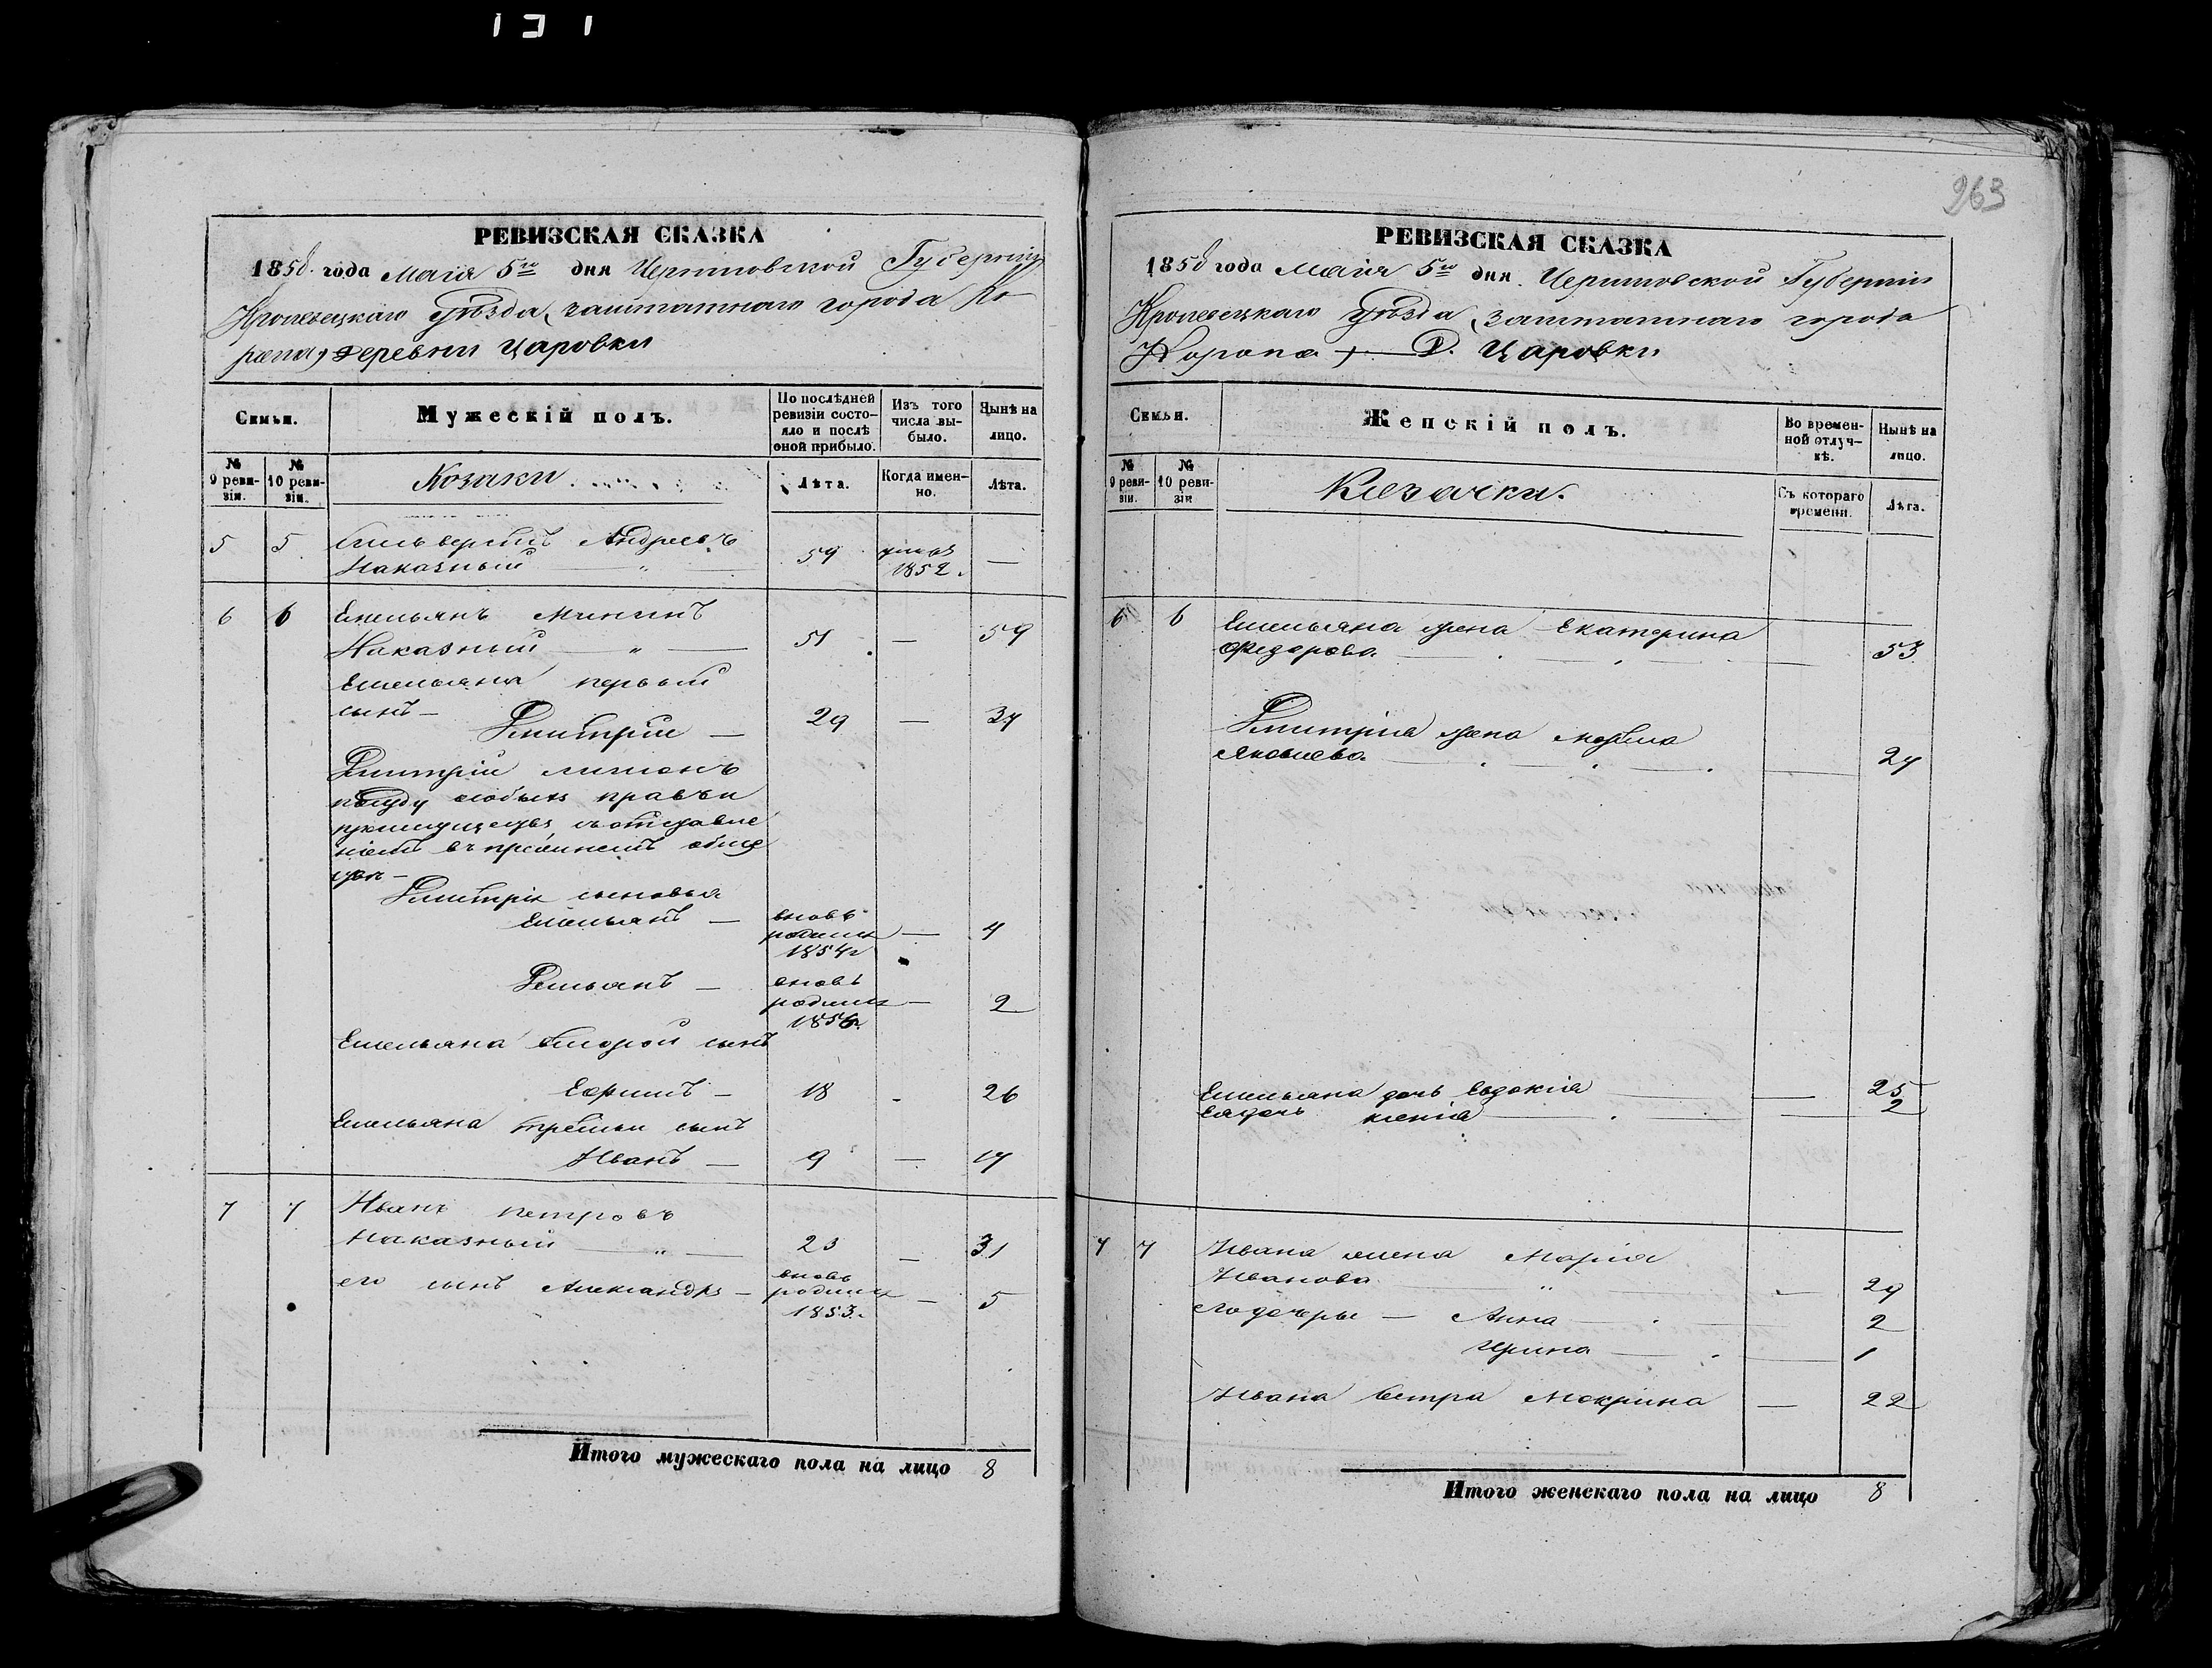 131
963
РЕВИЗСКАЯ СКАЗКА
1858 года Мая 5го дня Черниговской Губерніи
Кролевецкаго Уѣзда, заштатнаго города Ко-
ропа, деревни Царовки
Семьи.
Мужескій полъ.
По послѣдней ревизіи состояло и послѣ оной прибыло.
Изъ того числа выбыло.
Нынѣ на лицо.
№ 9 ревизіи.
№ 10 ревизіи.
Козаки
Лѣта.
Когда именно.
Лѣта.
5 5 Сильверстъ Андреевъ
Наказный — " — 59 умеръ 1852. —
6 6 Емельянъ Мининъ
Наказный — " — 51 — 59
Емельяна первый
сынъ —
Дмитрій — 29 — 37
Дмитрій лишонъ
особыхъ правъ и
преимуществъ съ оставле
ніемъ въ прежнемъ обще
ствѣ —
Дмитрія сыновья
Емельянъ — вновь родился 1854г — 4
Демьянъ — вновь родился 1856г. — 2
Емельяна второй сынъ
Ефимъ — 18 - 26
Емельяна третьи сынъ
Иванъ — 9 — 17
7 7 Иванъ Петровъ
Наказный — " — 23 — 31
его сынъ Александръ — вновь родился 1853г. — 5
Итого мужескаго пола на лицо 8
РЕВИЗСКАЯ СКАЗКА
1858 года Мая 5го дня. Черниговской Губерніи
Кролевецкаго Уѣзда, заштатнаго города
Коропа, — Д. Царовки
Семьи.
Женскій полъ.
Во временной отлучкѣ.
Нынѣ на лицо.
№ 9 ревизіи.
№ 10 ревизіи
Козачки.
Съ котораго времени.
Лѣта.
6 6 Емельяна жена Екатерина
Федорова. — 53
Дмитрія жена
Яковлева. — 27
Емельяна дочь Евдокія — 25
Ея дочь Ксенія — 2
7 7 Ивана жена Марія
Иванова — " — 29
его дочеры — Анна — 2
Ирина — 1
Ивана Сестра Мокрина — 22
Итого женскаго пола на лицо 8